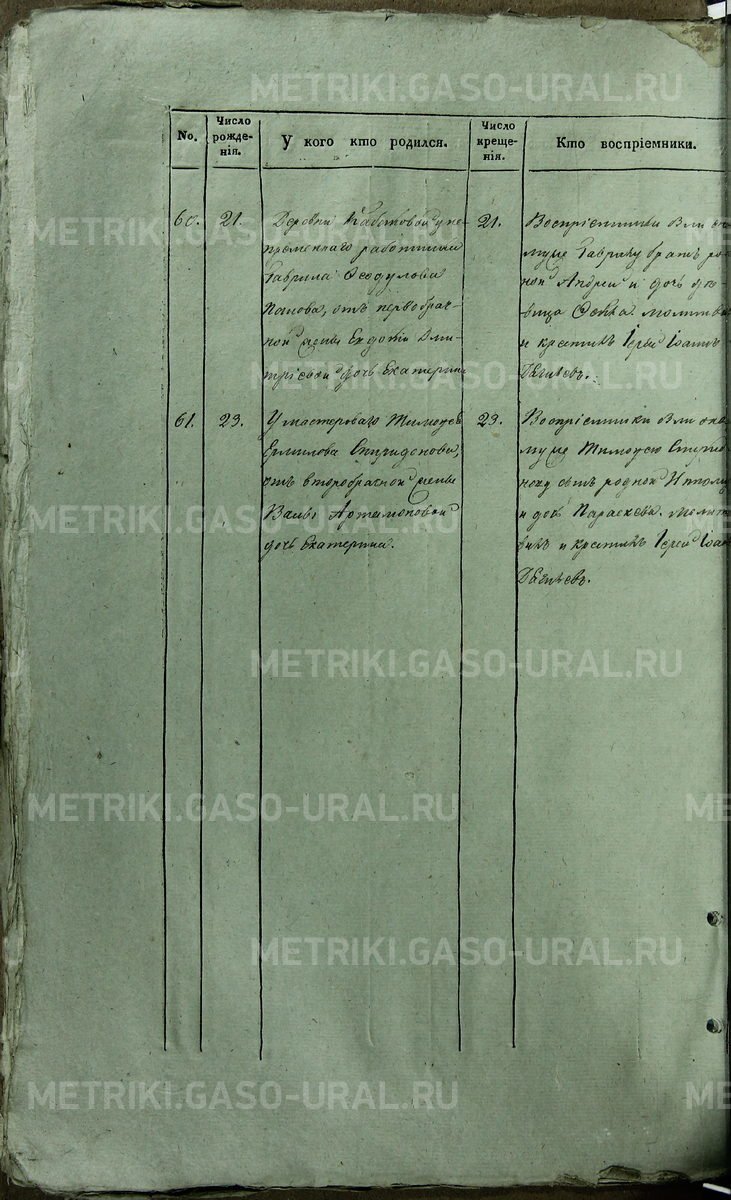 METRIKI.GASO-URAL.RU
No.
Число рожде- нія.
У кого кто родился.
Число креще- нія.
Кто воспріемники.
60.
21.
Деревни
пременнаго работника
Гаврила Ѳеодулова
Попова, отъ первобрач-
ной жены Евдотіи Дми-
тріевой дочь Екатерина
21.
Воспріемники были
мужа Гаврилу братъ род
ной Андрей и дочь дѣ
вица молитвил
и крестилъ Іерей Іоаннъ
61.
23.
У мастероваго Тимоѳея
Ермилова Спиридонова,
отъ второбрачной жены
Артамоновой
дочь Екатерина.
23.
Воспріемники были
Тимоѳею Спиридо
нову родной
и Параскева. Молит
вилъ и крестилъ Іерей Іоан
METRIKI.GASO-URAL.RU
METRIKI.GASO-URAL.RU
METRIKI.GASO-URAL.RU
METRIKI.GASO-URAL.RU
METRIKI.GASO-URAL.RU
METRIKI.GASO-URAL.RU
METRIKI.GASO-URAL.RU